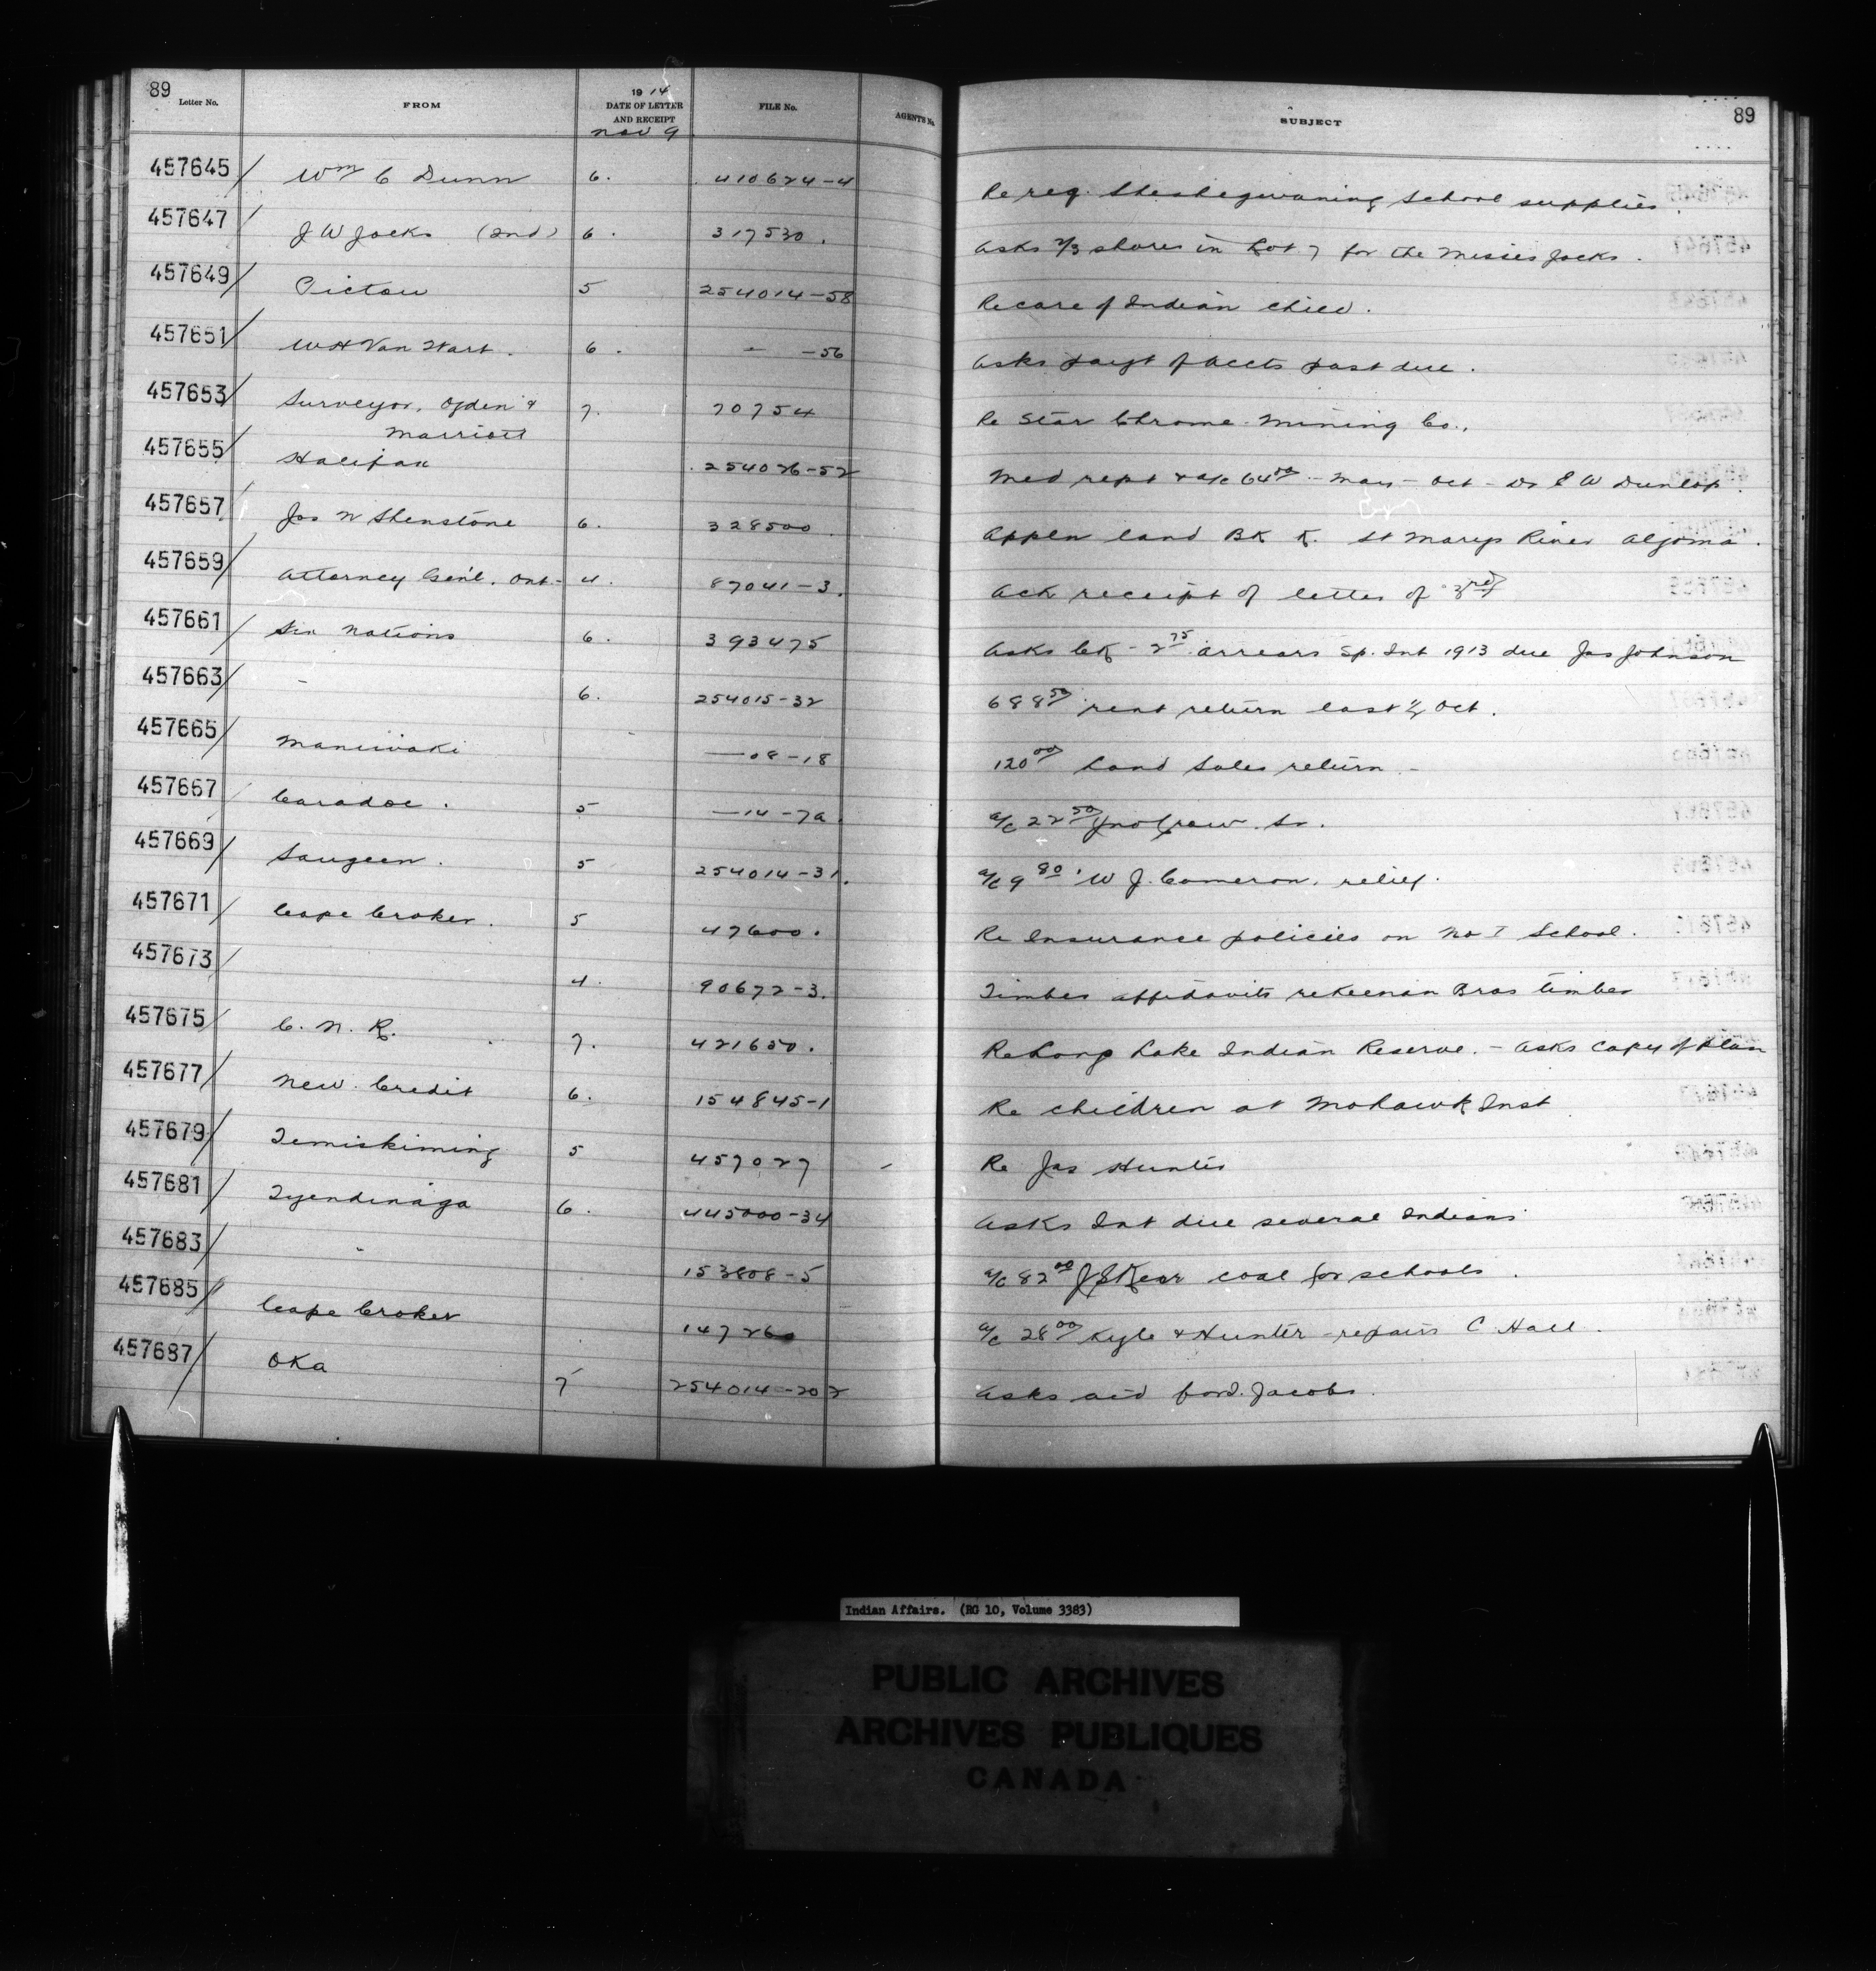 89 Letter No. FROM 1914 DATE OF LETTER AND RECEIPT Nov 9 FILE No. AGENTS No. SUBJECT 89
457645 Wm C Dunn 6. 410624-4 Re req. Sheshegwaning School supplies.
457647 J W Jacks (Ind) 6. 317530. Asks 2/3 shares in Lot 7 for the Misses Jacks.
457649 Pictou 5 254014-58 Re care of Indian child.
457651 W H Van Wart. 6. - -56 Asks payt of accts past due.
457653 Surveyor, Ogden & Marriott 7. 70754 Re Star Chrome Mining Co.,
457655 Halifax 254026-52 Med rept & a/c 64 - Oct - Dr Dunlop.
457657 Jas N Shenstone 6. 328500 Appln land BK K. St Marys River Algoma.
457659 Attorney Gen'l. Ont. - 4. 87041-3. Ack receipt of letter of 3rd
457661 Six Nations 6. 393475 Asks CK - 2 75 arrears Sp. Int 1913 due Jas Johnson
457663 - 6. 254015-32 688 50 rent return last 1/2 Oct.
457665 Maniwaki — 08-18 120 00 Land Sales return -
457667 Caradoc. 5 — 14-7a a/c 22 50 Jno
457669 Saugeen. 5 254014-31. a/c 9 80. W J. Cameron, relief.
457671 Cape Croker. 5 47600. Re Insurance policies on No I School.
457673 4. 90672-3. Timber affidavits re Keenan Bros timber
457675 C. N. R. 7. 421650. Re Long Lake Indian Reserve. - Asks Copy of Plan
457677 New Credit 6. 154845-1 Re children at Mohawk Inst
457679 Temiskiming 5 457027 Re Jas Hunter
457681 Tyendinaga 6. 445000-34 Asks Int due several Indians
457683 " 153808-5 a/c 82 00 coal for schools.
457685 Cape Croker 147260 a/c 28 00 Kyle & Hunter - repairs C Hall.
457687 Oka 7 254014-20 2 Asks aid for Jacobs.
Indian Affairs. (RG 10, Volume 3383)
PUBLIC ARCHIVES
ARCHIVES PUBLIQUES
CANADA